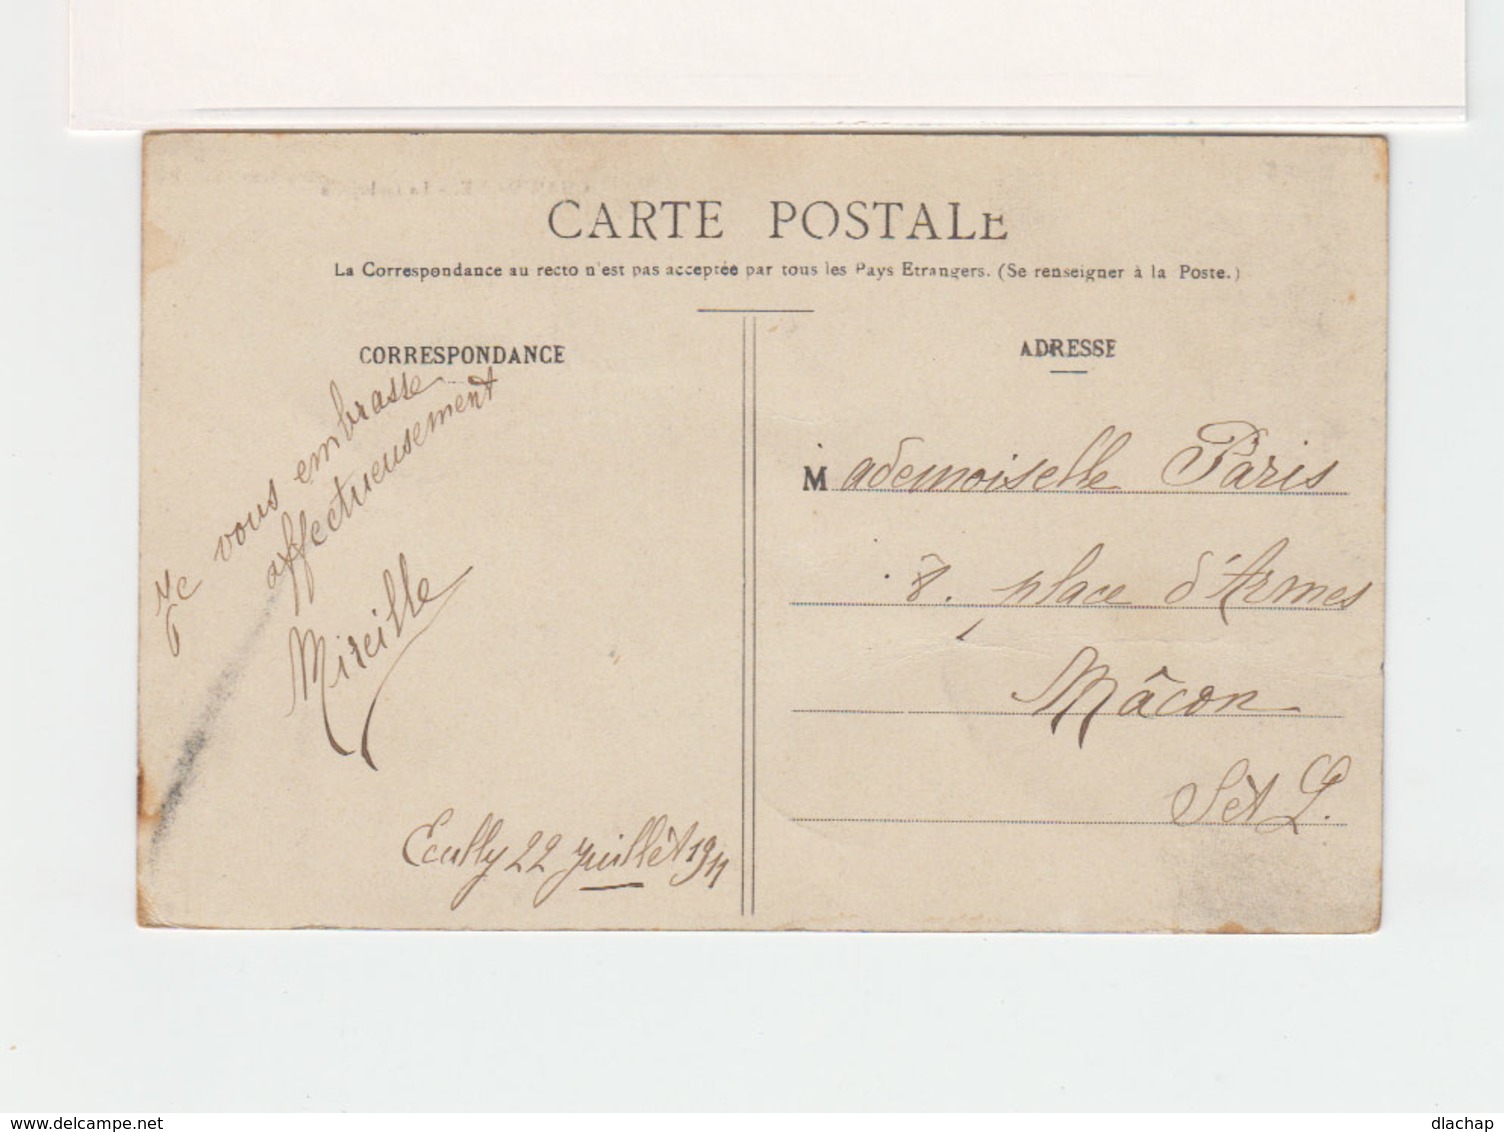 CARTE POSTALE
La Correspondance au recto n'est pas acceptée par tous les Pays Etrangers. (Se renseigner à la Poste.)
CORRESPONDANCE
Je vous embrasse
affectueusement
Mireille
Ecully 22 juillèt 1911
ADRESSE
Mademoiselle Paris
8. place d'Armes
Mâcon
S et L.
www.delcampe.net
dlachap